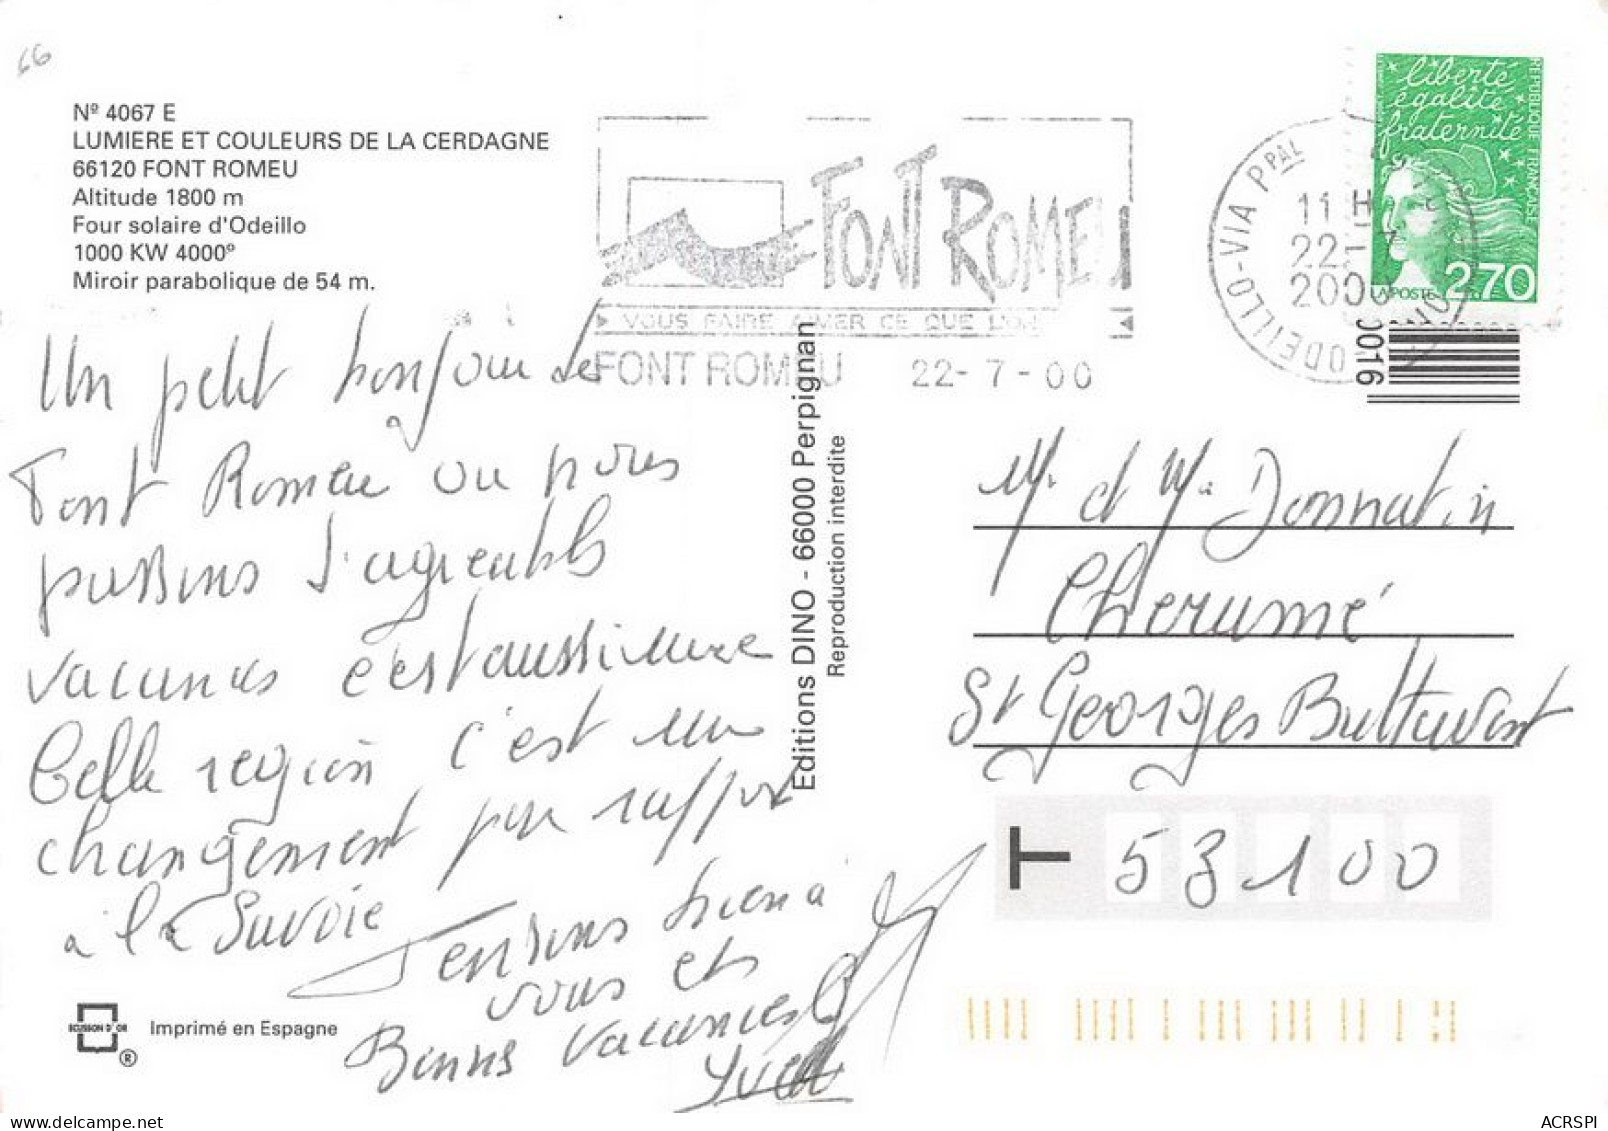 66
Nº 4067 E
LUMIERE ET COULEURS DE LA CERDAGNE
66120 FONT ROMEU
Altitude 1800 m
Four solaire d'Odeillo
1000 KW 4000º
Miroir parabolique de 54 m.
FONT ROMEU
VOUS FAIRE AIMER CE QUE L'ON
FONT ROMEU 22-7-00
ODEILLO-VIA PPAL
11 H
22-7
200
liberté
égalité
fraternité
REPUBLIQUE FRANÇAISE
LA POSTE 2,70
0016
Un petit bonjour de
Font Romeu ou nous
passons d'agréables
vacances c'est aussi une
belle région c'est un
changement par rapport
à la Savoie
Pensons bien à
vous et
Bonnes vacances
Yves
Editions DINO - 66000 Perpignan
Reproduction interdite
Mr et Me Donnatin
Cherumé
St Georges Buttavent
T 53100
ECUSSON D'OR
®
Imprimé en Espagne
ACRSPI